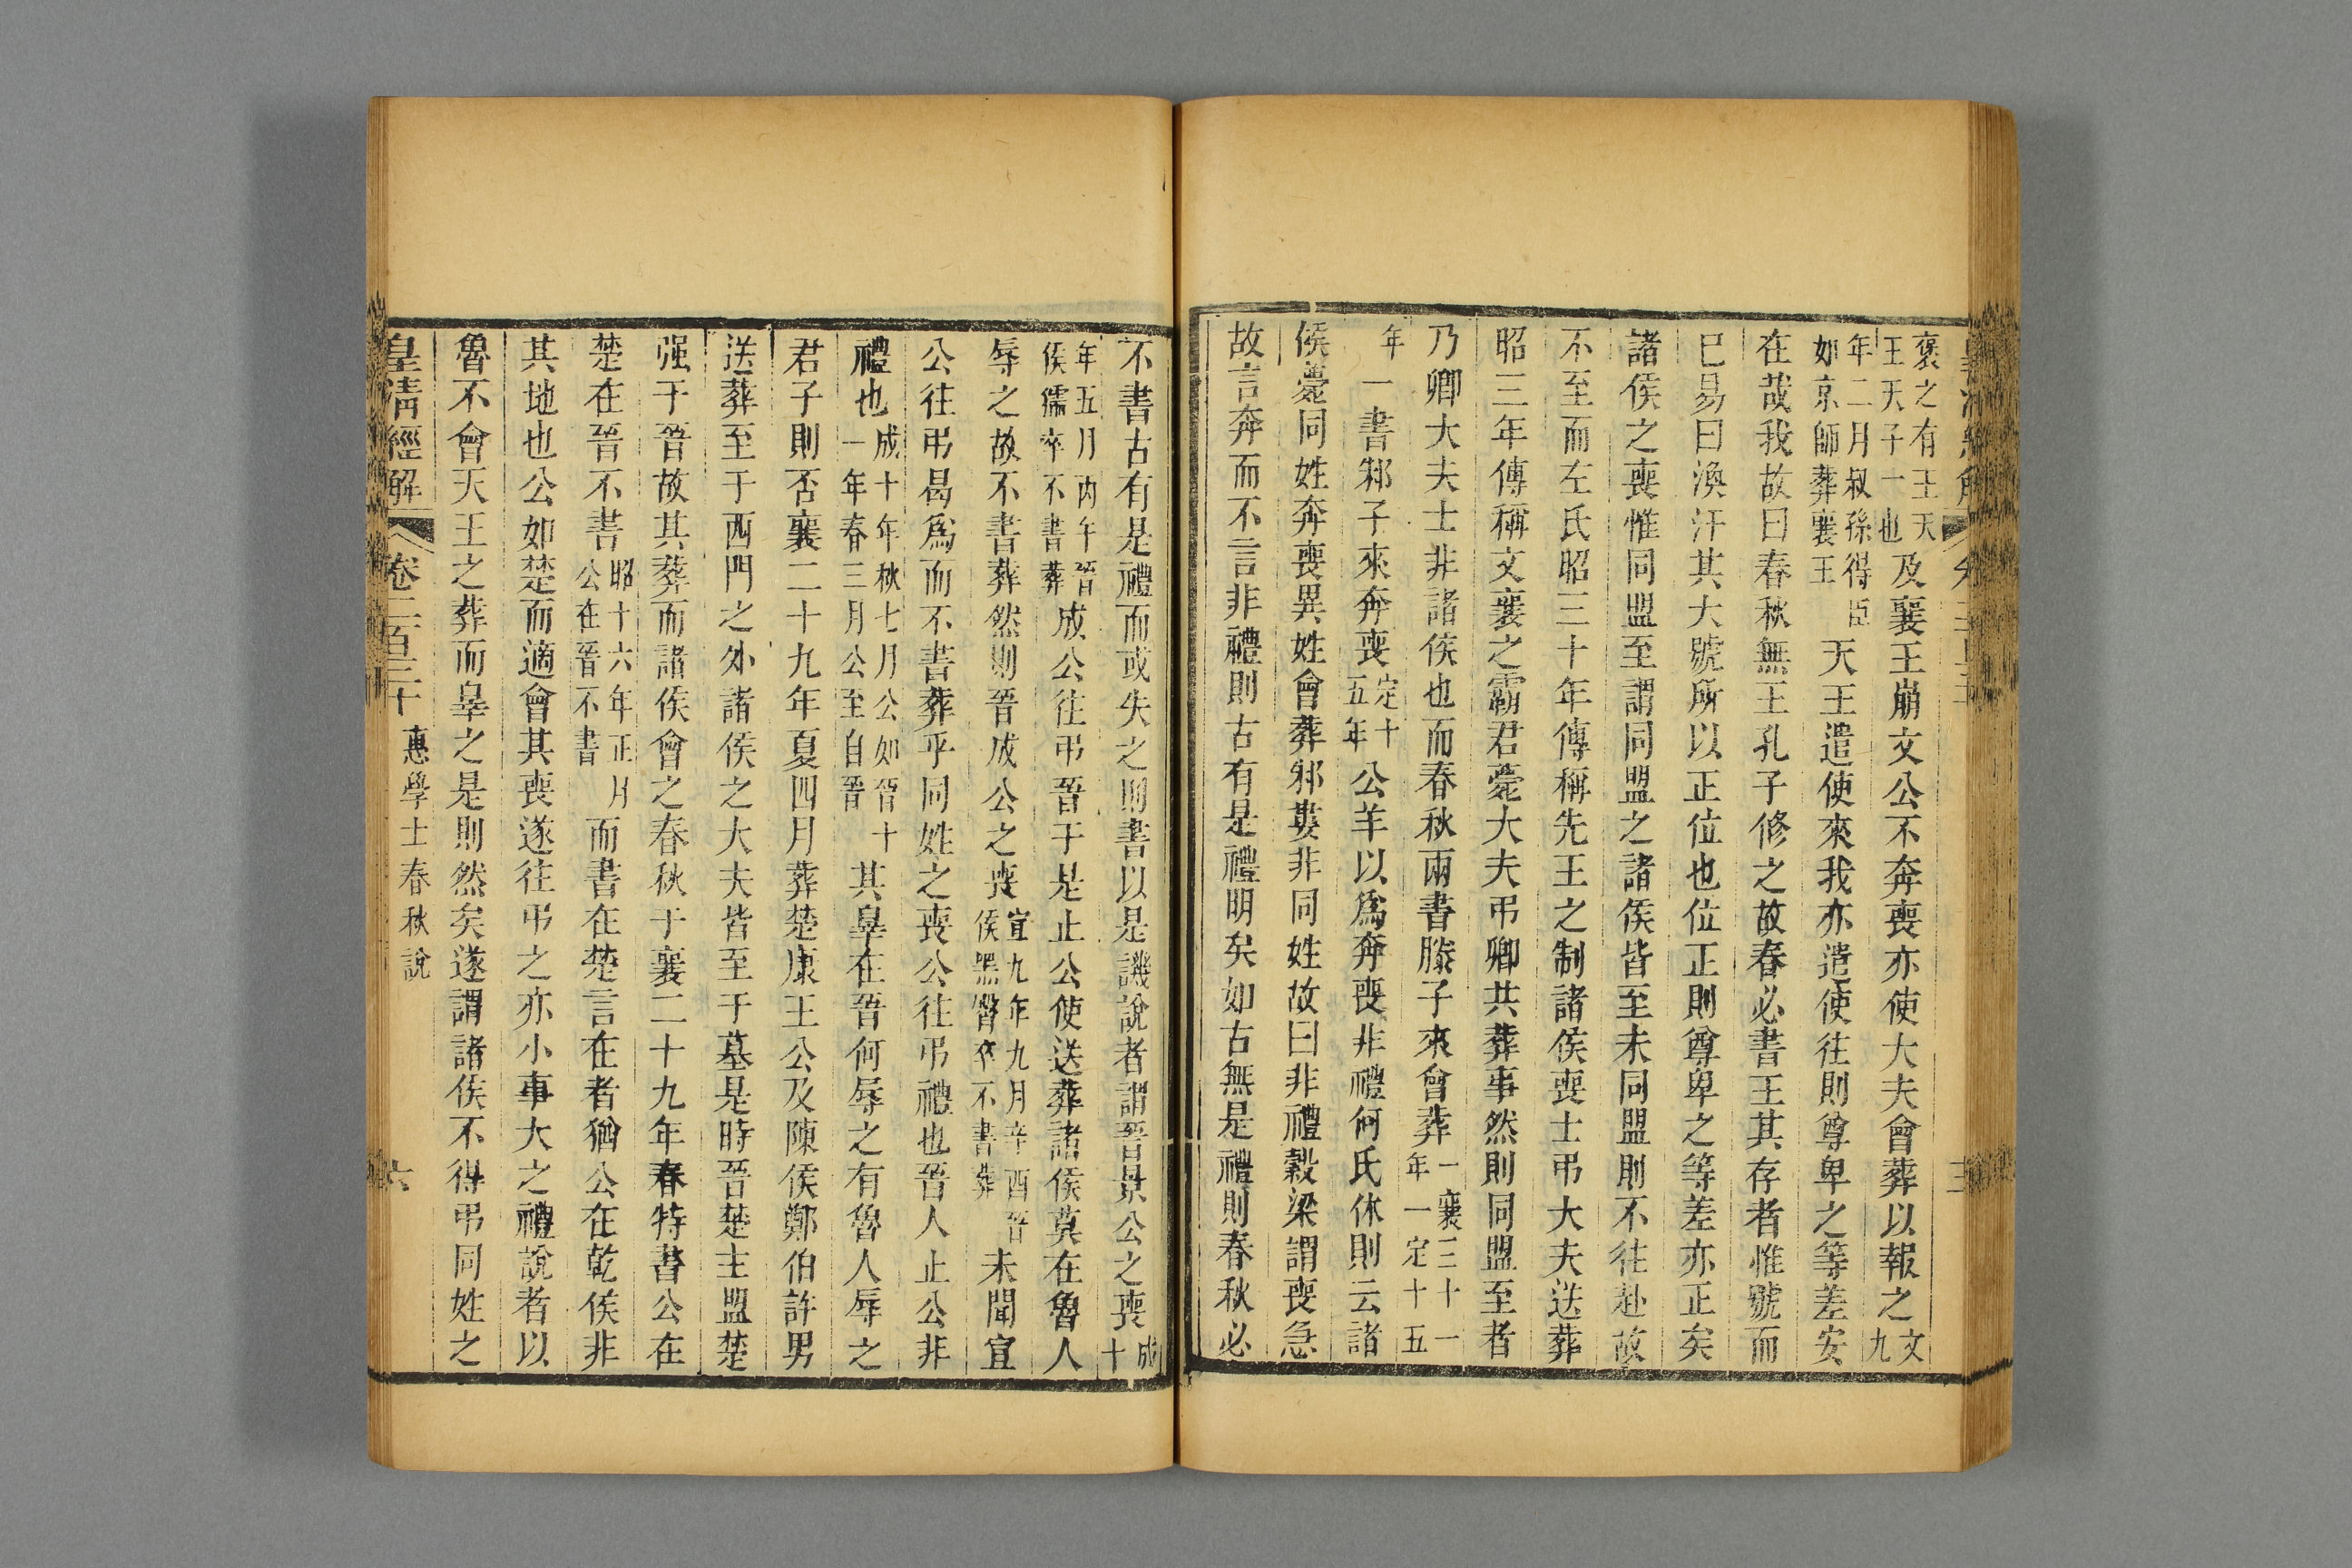 褒之有王天王天子一也及襄王崩文公不奔喪亦使大夫會葬以報之文九
年二月叔孫得臣如京師葬襄王天王遣使來我亦遣使往則尊卑之等差安
在哉我故曰春秋無王孔子修之故春必書王其存者惟號而
已易曰渙汗其大號所以正位也位正則尊卑之等差亦正矣
諸侯之喪惟同盟至謂同盟之諸侯皆至未同盟則不往赴故
不至而左氏昭三十年傳稱先王之制諸侯喪士弔大夫送葬
昭三年傳稱文襄之霸君薨大夫弔卿共葬事然則同盟至者
乃卿大夫士非諸侯也而春秋兩書滕子來會葬一襄三十一年一定十五
年一書邾子來奔喪定十五年公羊以爲奔喪非禮何氏休則云諸
侯薨同姓奔喪異姓會葬邾婁非同姓故曰非禮穀梁謂喪急
故言奔而不言非禮則古有是禮明矣如古無是禮則春秋必
不書古有是禮而或失之則書以是譏說者謂晉景公之喪成十
年五月丙午晉侯獳卒不書葬成公往弔晉于是止公使送葬諸侯莫在魯人
辱之故不書葬然則晉成公之喪宣九年九月辛酉晉侯黑臀卒不書葬未聞宣
公往弔曷爲而不書葬乎同姓之喪公往弔禮也晉人止公非
禮也成十年秋七月公如晉十一年春三月公至自晉其辠在晉何辱之有魯人辱之
君子則否襄二十九年夏四月葬楚康王公及陳侯鄭伯許男
送葬至于西門之外諸侯之大夫皆至于墓是時晉楚主盟楚
强于晉故其葬而諸侯會之春秋于襄二十九年春特書公在
楚在晉不書昭十六年正月公在晉不書而書在楚言在者猶公在乾侯非
其地也公如楚而適會其喪遂往弔之亦小事大之禮說者以
魯不會天王之葬而辠之是則然矣遂謂諸侯不得弔同姓之
皇清經解 卷二百三十 惠學士春秋說 六